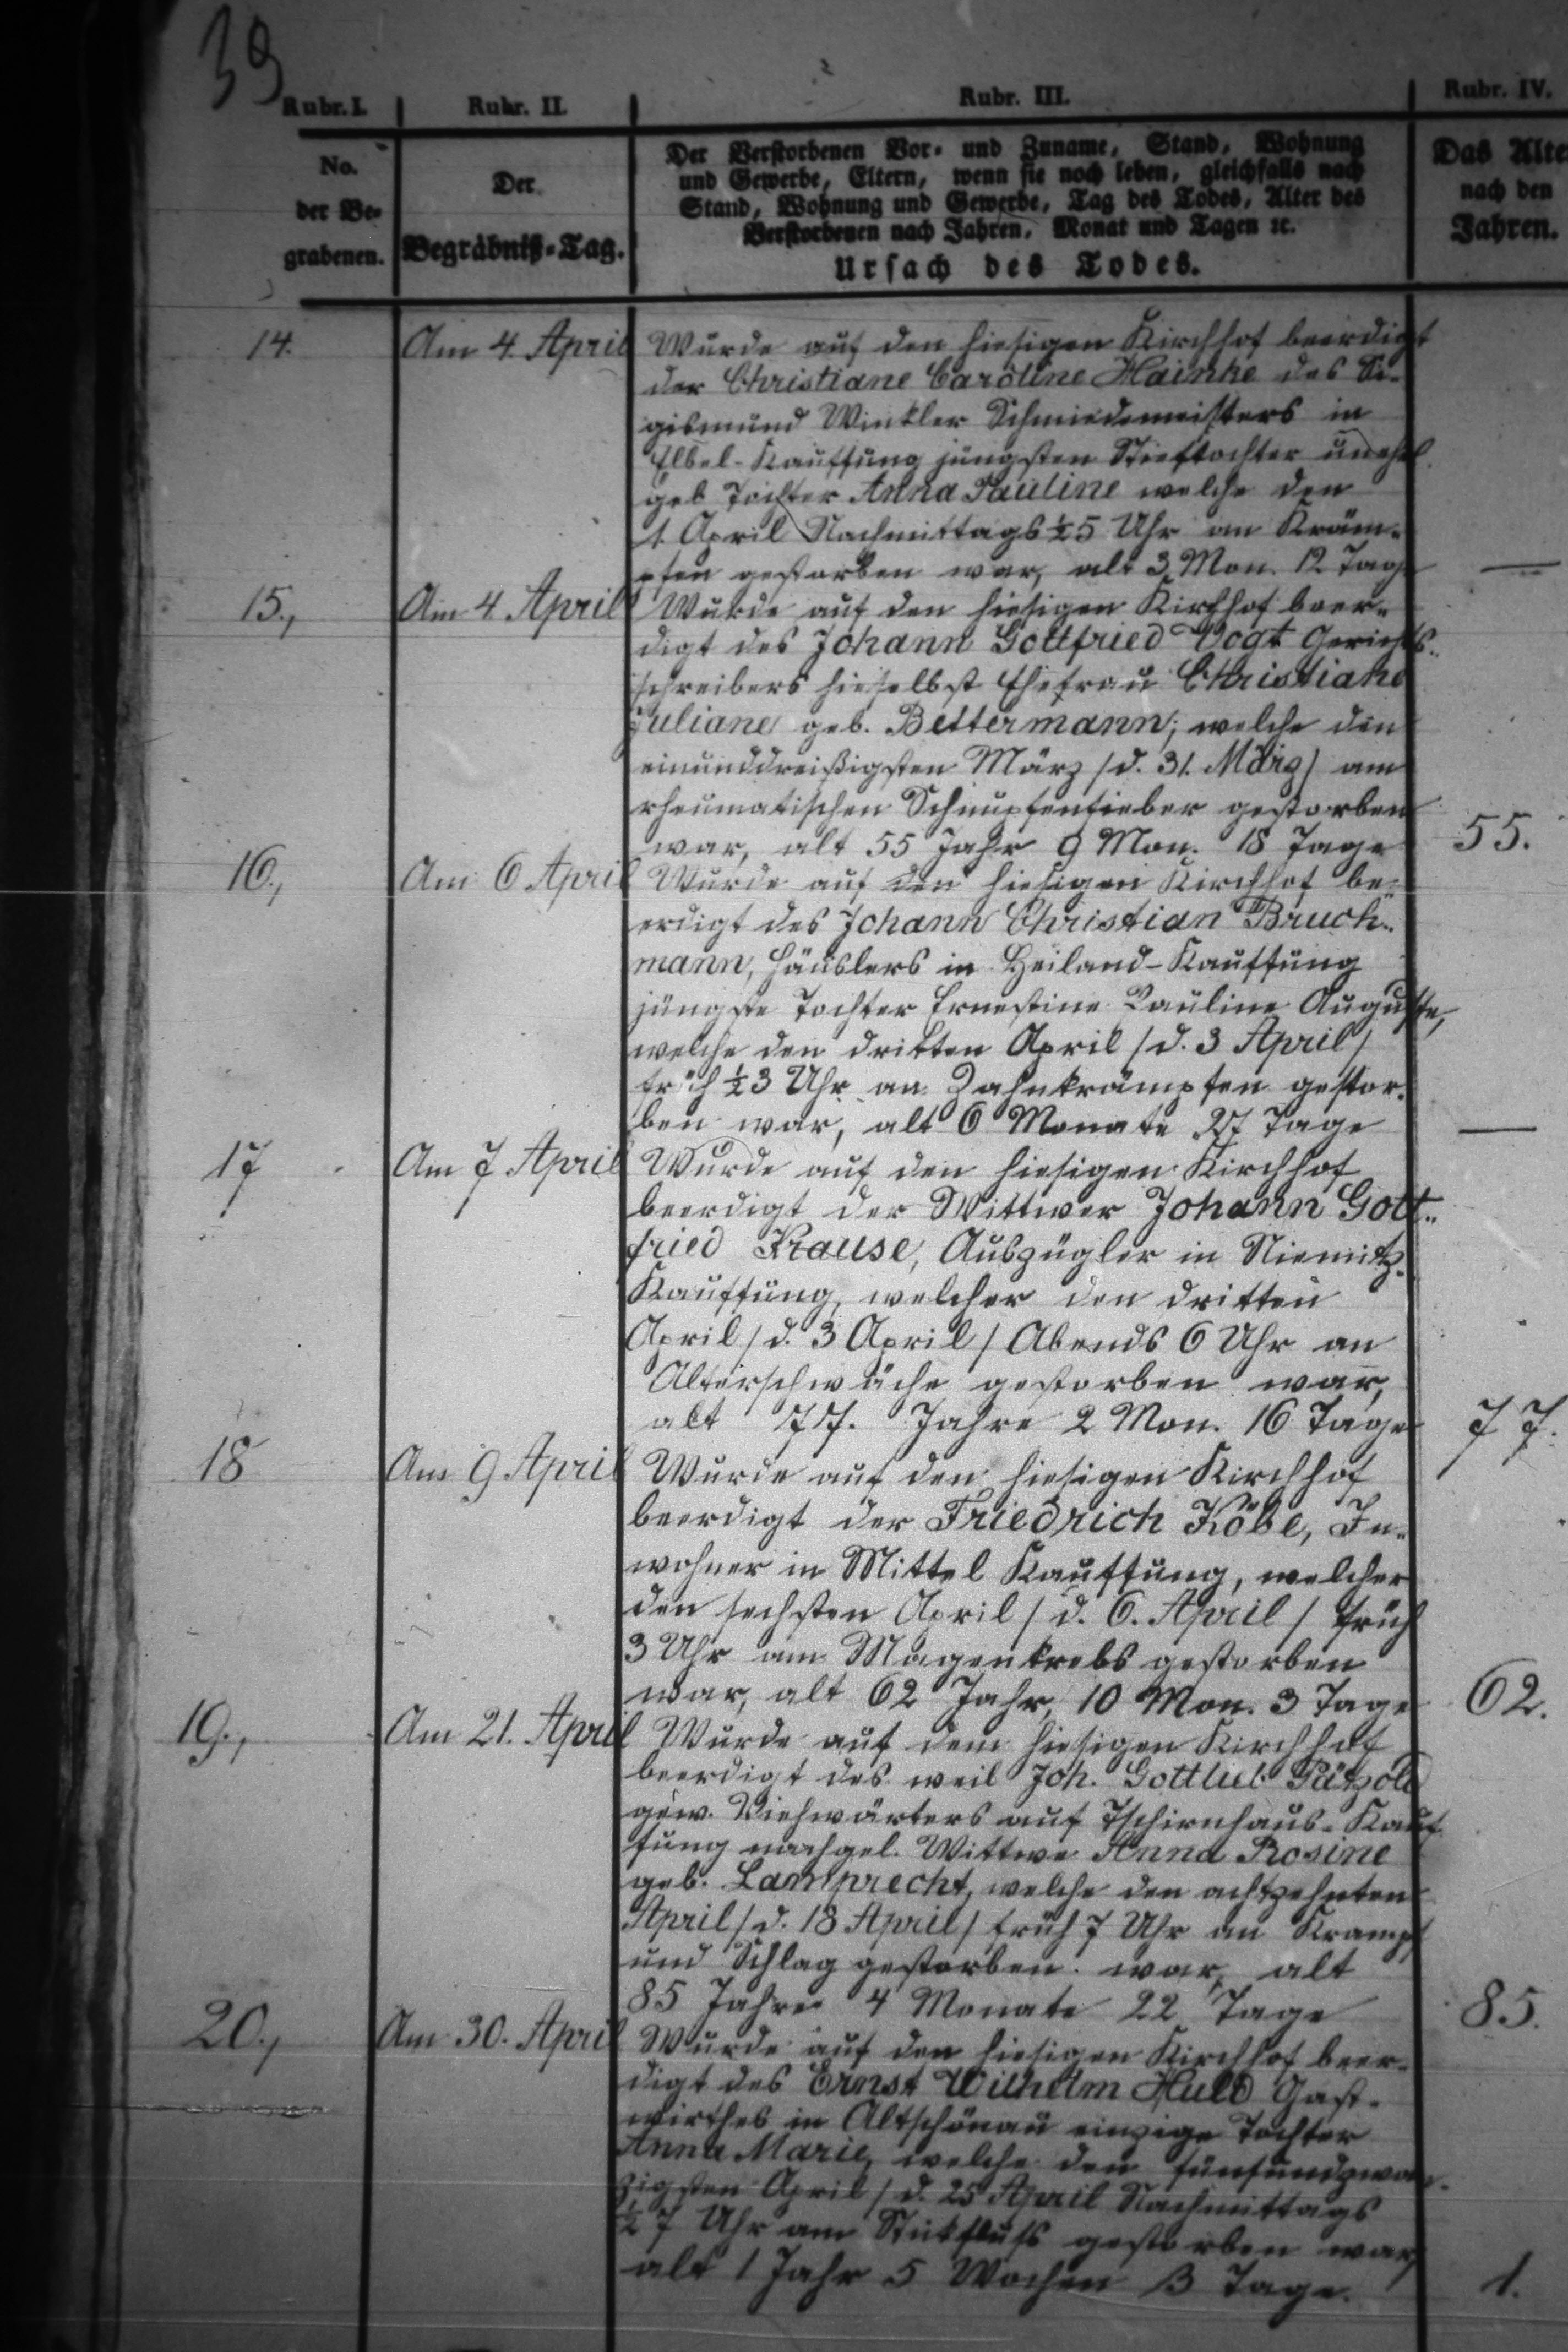 39
Rubr. I.
Rubr. II.
Rubr. III.
Rubr. IV.
No.
der Be-
grabenen.
Der
Begräbniß-Tag.
Der Verstorbenen Vor- und Zuname, Stand, Wohnung
und Gewerbe, Eltern, wenn sie noch leben, gleichfalls nach
Stand, Wohnung und Gewerbe, Tag des Todes, Alter des
Verstorbenen nach Jahren, Monat und Tagen ꝛc.
Ursach des Todes.
Das Alte
nach den
Jahren.
14.
Am 4. April
Wurde auf den hiesigen Kirchhof beerdigt
der Christiane Caroline Hainke des Si-
gismund Winkler Schmiedemeisters in
Elbel-Kauffung jüngsten Stieftochter unehl.
geb Tochter Anna Pauline welche den
1. April Nachmittags ½5 Uhr an Kräm-
pfen gestorben war, alt 3 Mon. 12 Tage
—
15.,
Am 4. April
Wurde auf den hiesigen Kirchhof beer-
digt des Johann Gottfried Vogt Gerichts-
schreibers hieselbst Ehefrau Christiane
Juliane geb. Bettermann, welche den
einunddreißigsten März /d. 31. März/ am
rheumatischen Schnupfenfieber gestorben
war, alt 55 Jahr 9 Mon. 18 Tage
55.
16.,
Am 6 April
Wurde auf den hiesigen Kirchhof be-
erdigt des Johann Christian Bruch-
mann, Häuslers in Heiland-Kauffung
jüngste Tochter Ernestine Pauline Auguste,
welche den dritten April /d. 3 April/
früh ½3 Uhr an Zahnkrämpfen gestor-
ben war, alt 6 Monate 27 Tage
—
17
Am 7 April
Wurde auf den hiesigen Kirchhof
beerdigt der Wittwer Johann Gott-
fried Krause, Auszügler in Niemitz-
Kauffung, welcher den dritten
April /d. 3 April/ Abends 6 Uhr an
Alterschwäche gestorben war,
alt 77. Jahre 2 Mon. 16 Tage
77.
18
Am 9 April
Wurde auf den hiesigen Kirchhof
beerdigt der Friedrich Köbe, In-
wohner in Mittel Kauffung, welcher
den sechsten April /d. 6. April/ früh
3 Uhr am Magenkrebs gestorben
war, alt 62 Jahr, 10 Mon. 3 Tage
62.
19.,
Am 21. April
Wurde auf dem hiesigen Kirchhof
beerdigt des weil Joh. Gottlieb Pätzold
gew. Viehwärters auf Tschirnhaus-Kauf
fung nachgel. Wittwe Anna Rosine
geb. Lamprecht, welche den achtzehnten
April /d. 18 April/ früh 7 Uhr an Krampf
und Schlag gestorben war, alt
85 Jahre 4 Monate 22 Tage
85.
20.,
Am 30. April
Wurde auf den hiesigen Kirchhof beer-
digt des Ernst Wilhelm Huld Gast-
wirthes in Altschönau einzige Tochter
Anna Marie, welche den fünfundzwan-
zigsten April /d. 25 April Nachmittags
½ 7 Uhr am Stickfluß gestorben war,
alt 1 Jahr 5 Wochen 3 Tage.
1.